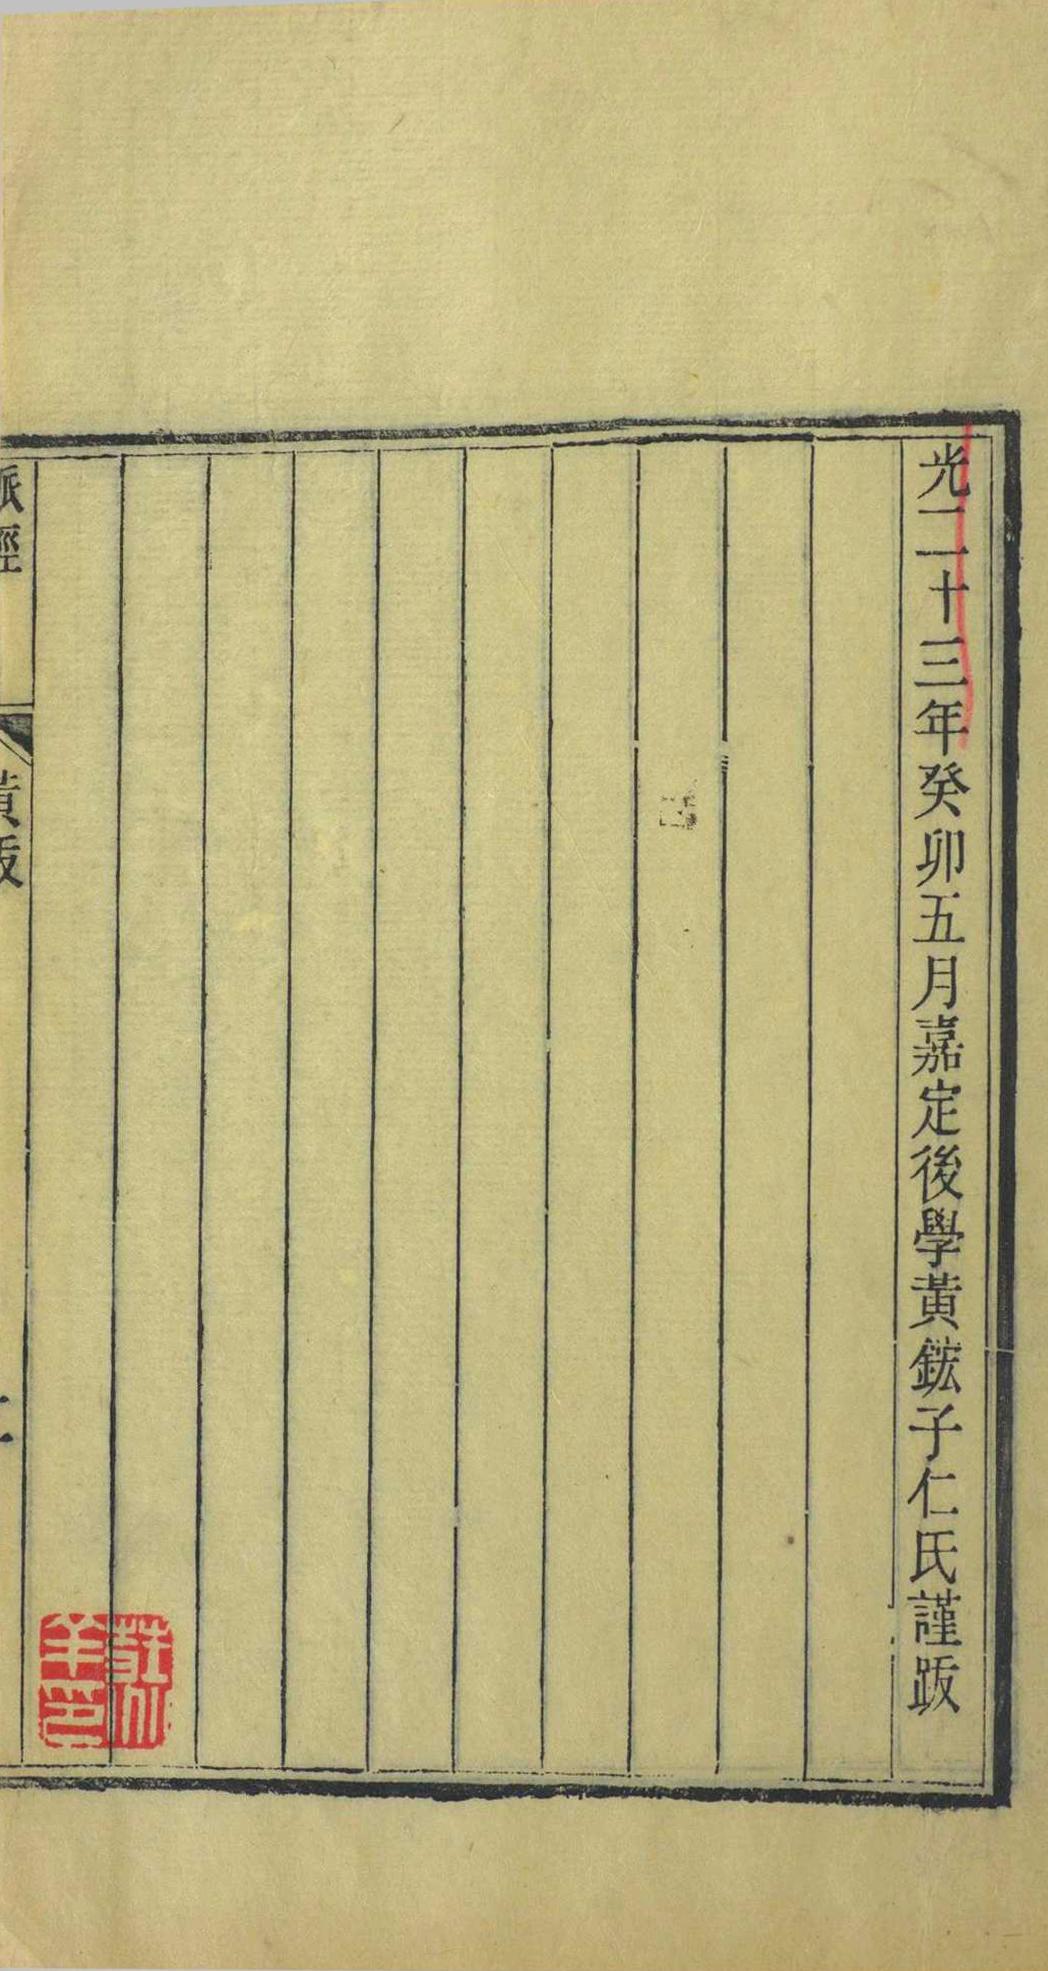 光二十三年癸卯五月嘉定後學黃鋐子仁氏謹跋
脈經
黃跋
二